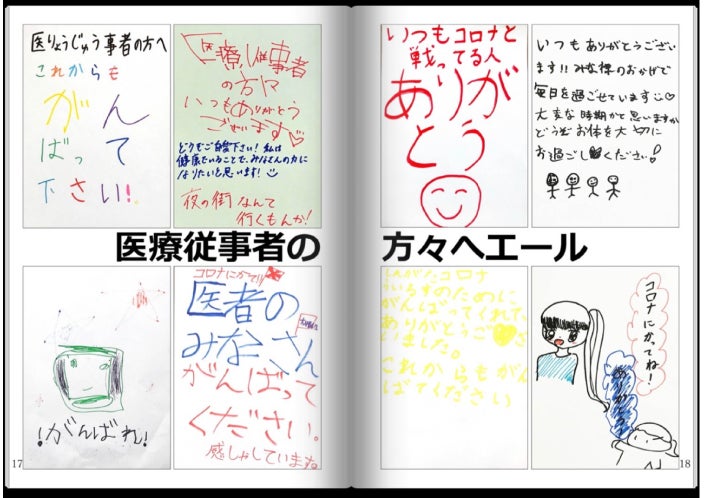 医りょうじゅう事者の方へ
これからも
がん
ばって
下さい!
医療従事者
の方々
いつもありがとう
ございます
どうもご自愛下さい!私は
健康でいることで、みなさんの力に
なりたいと思います!
夜の街なんて
行くもんか!
いつもコロナと
戦ってる人
ありが
とう
いつもありがとうござい
ます!!みな様のおかげで
毎日を過ごせています
大変な時期かと思いますが
どうぞお体を大切に
お過ごしください!
医療従事者の 方々へエール
!がんばれ!
コロナにかて!!
医者の
みなさん
がんばって
ください。
感しゃしています。
コロナ
ういるすのために
がんばってくれて
ありがとうござ
いました。
これからもがん
ばてください
コロナにかってね!
17
18